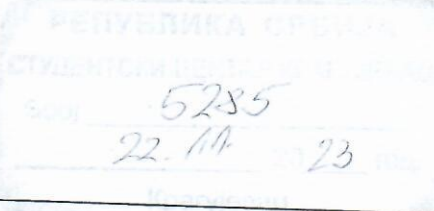 РЕПУБЛИКА СРБИЈА
СТУДЕНТСКИ
Број 5285
22. 11. 2023 год.
Крагујевац